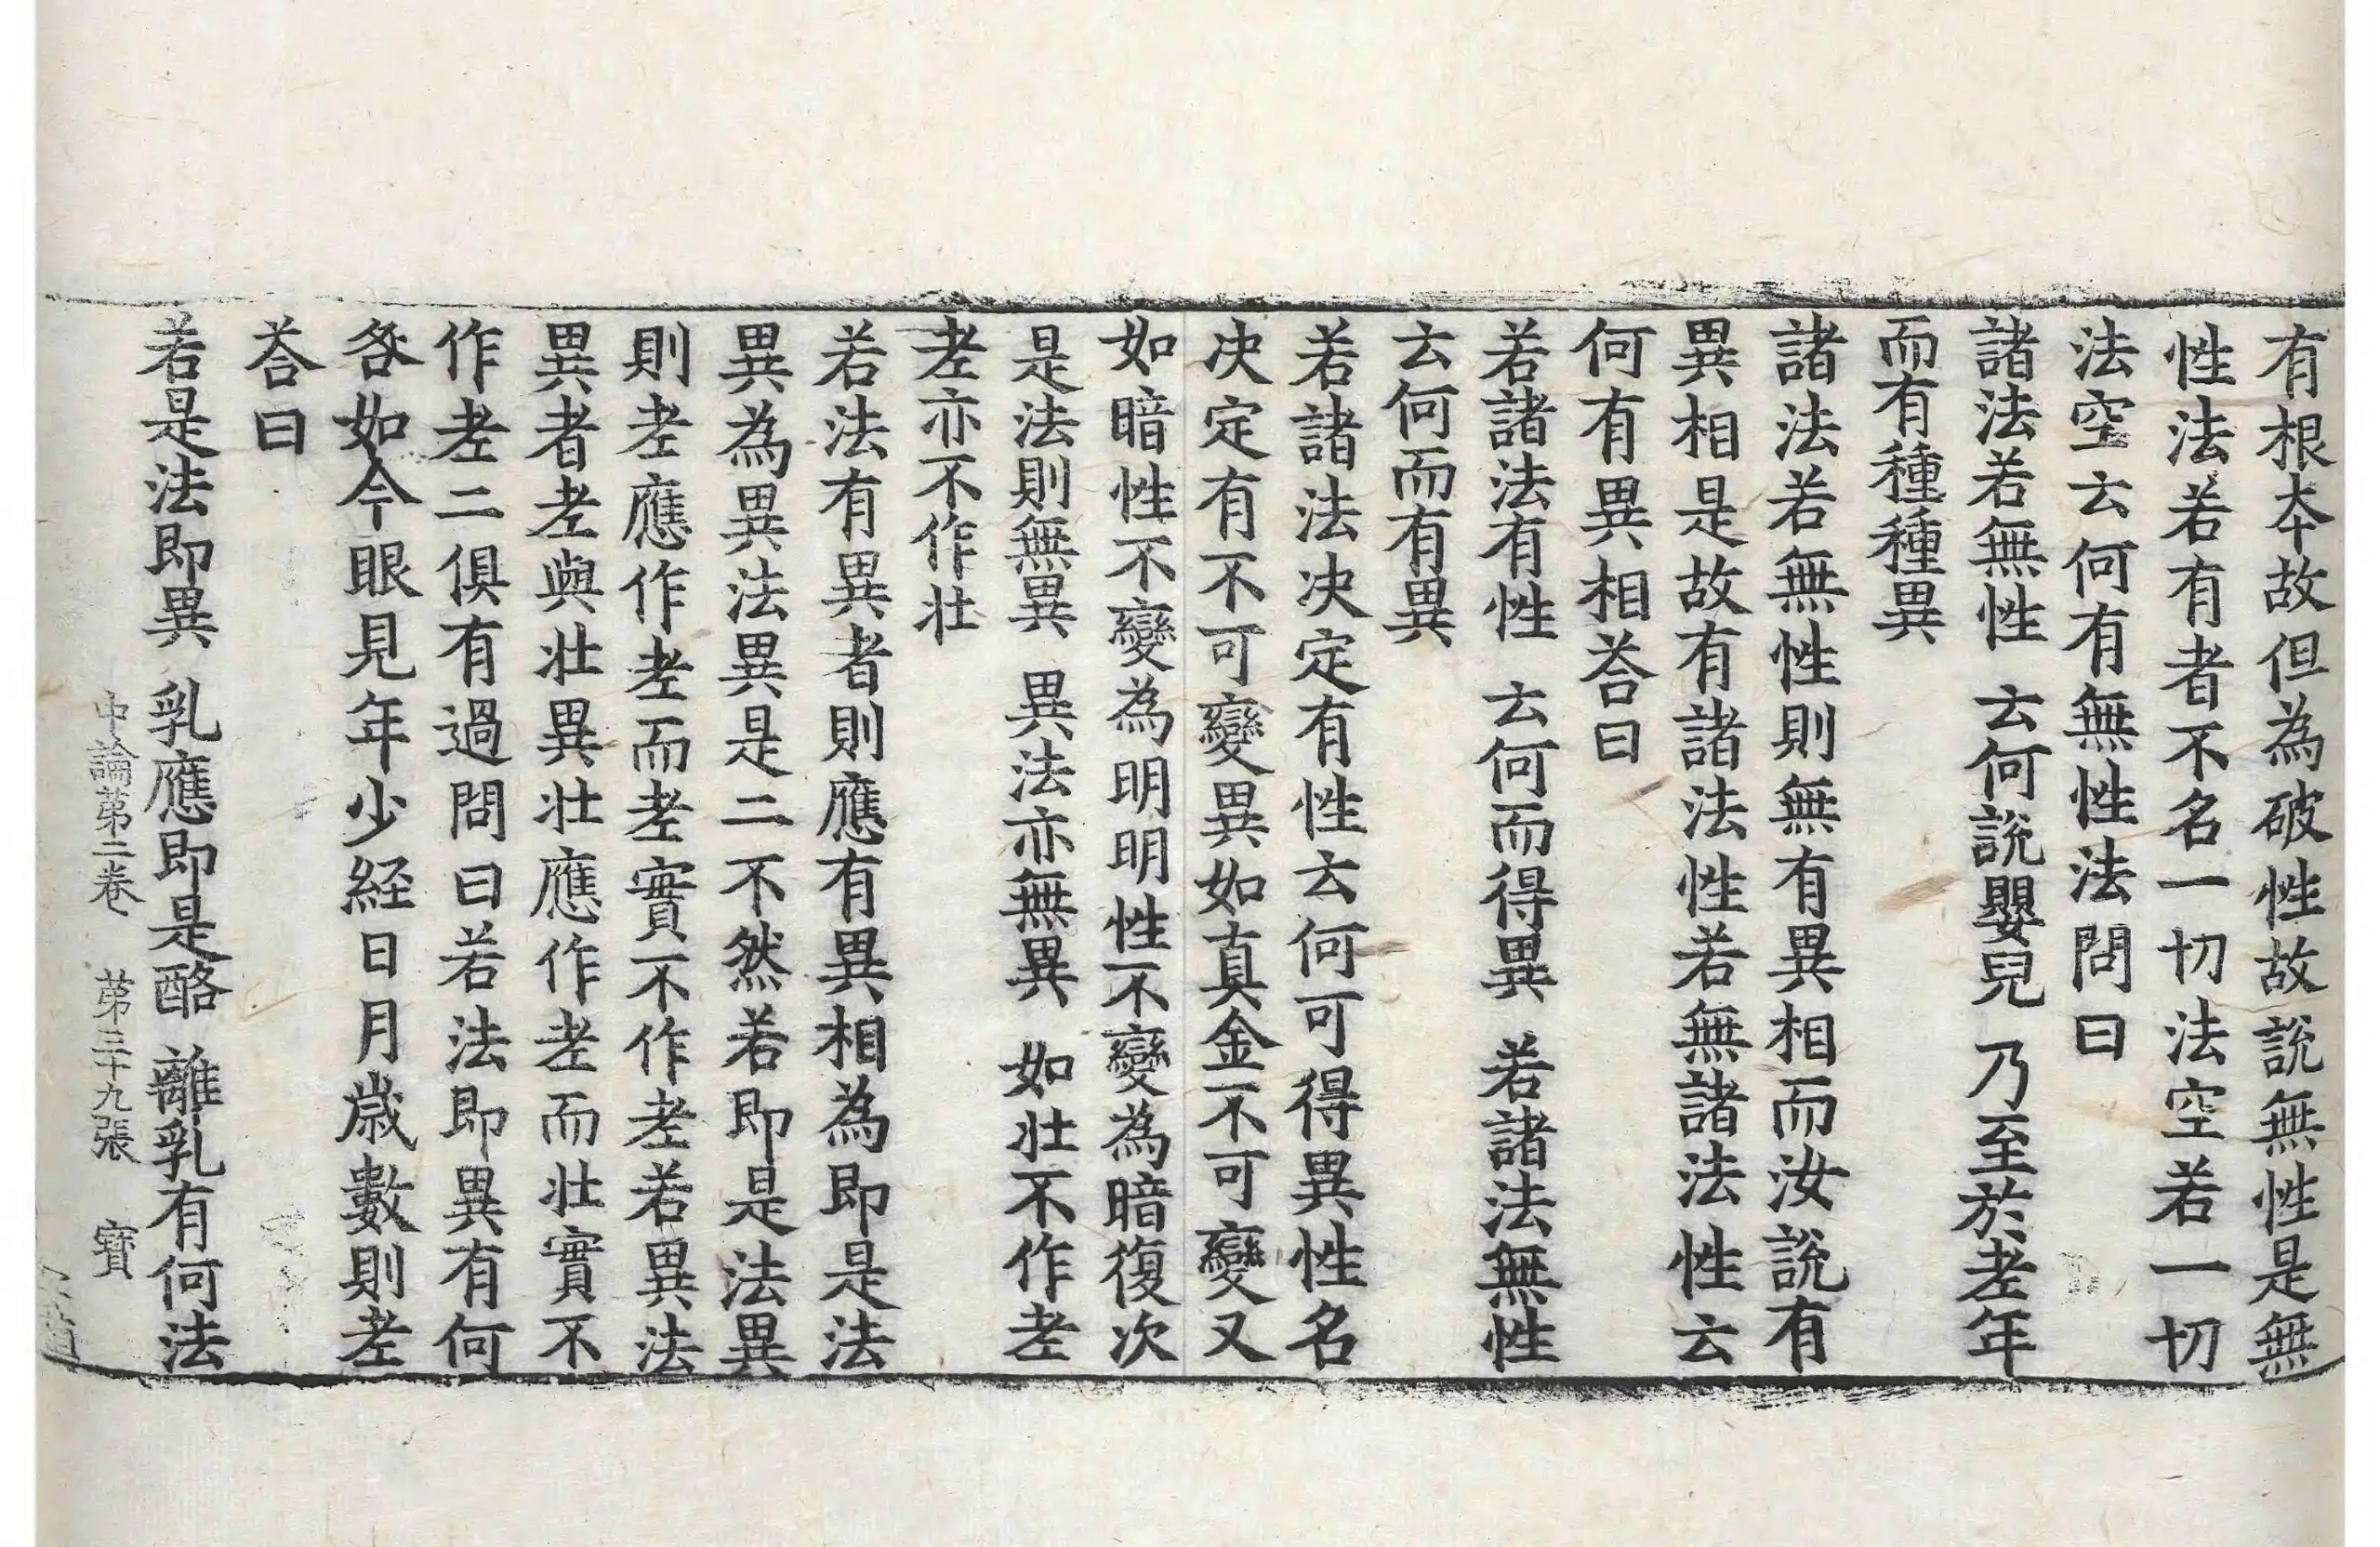 有根本故但為破性故說無性是無
性法若有者不名一切法空若一切
法空云何有無性法問曰
諸法若無性 云何說嬰兒 乃至於老年
而有種種異
諸法若無性則無有異相而汝說有
異相是故有諸法性若無諸法性云
何有異相荅曰
若諸法有性 云何而得異 若諸法無性
云何而有異
若諸法决定有性云何可得異性名
决定有不可變異如真金不可變又
如暗性不變為明明性不變為暗復次
是法則無異 異法亦無異 如壯不作老
老亦不作壯
若法有異者則應有異相為即是法
異為異法異是二不然若即是法異
則老應作老而老實不作老若異法
異者老與壯異壯應作老而壯實不
作老二俱有過問曰若法即異有何
咎如今眼見年少経日月歲數則老
荅曰
若是法即異 乳應即是酪 離乳有何法
中論第二卷 第三十九張 寶